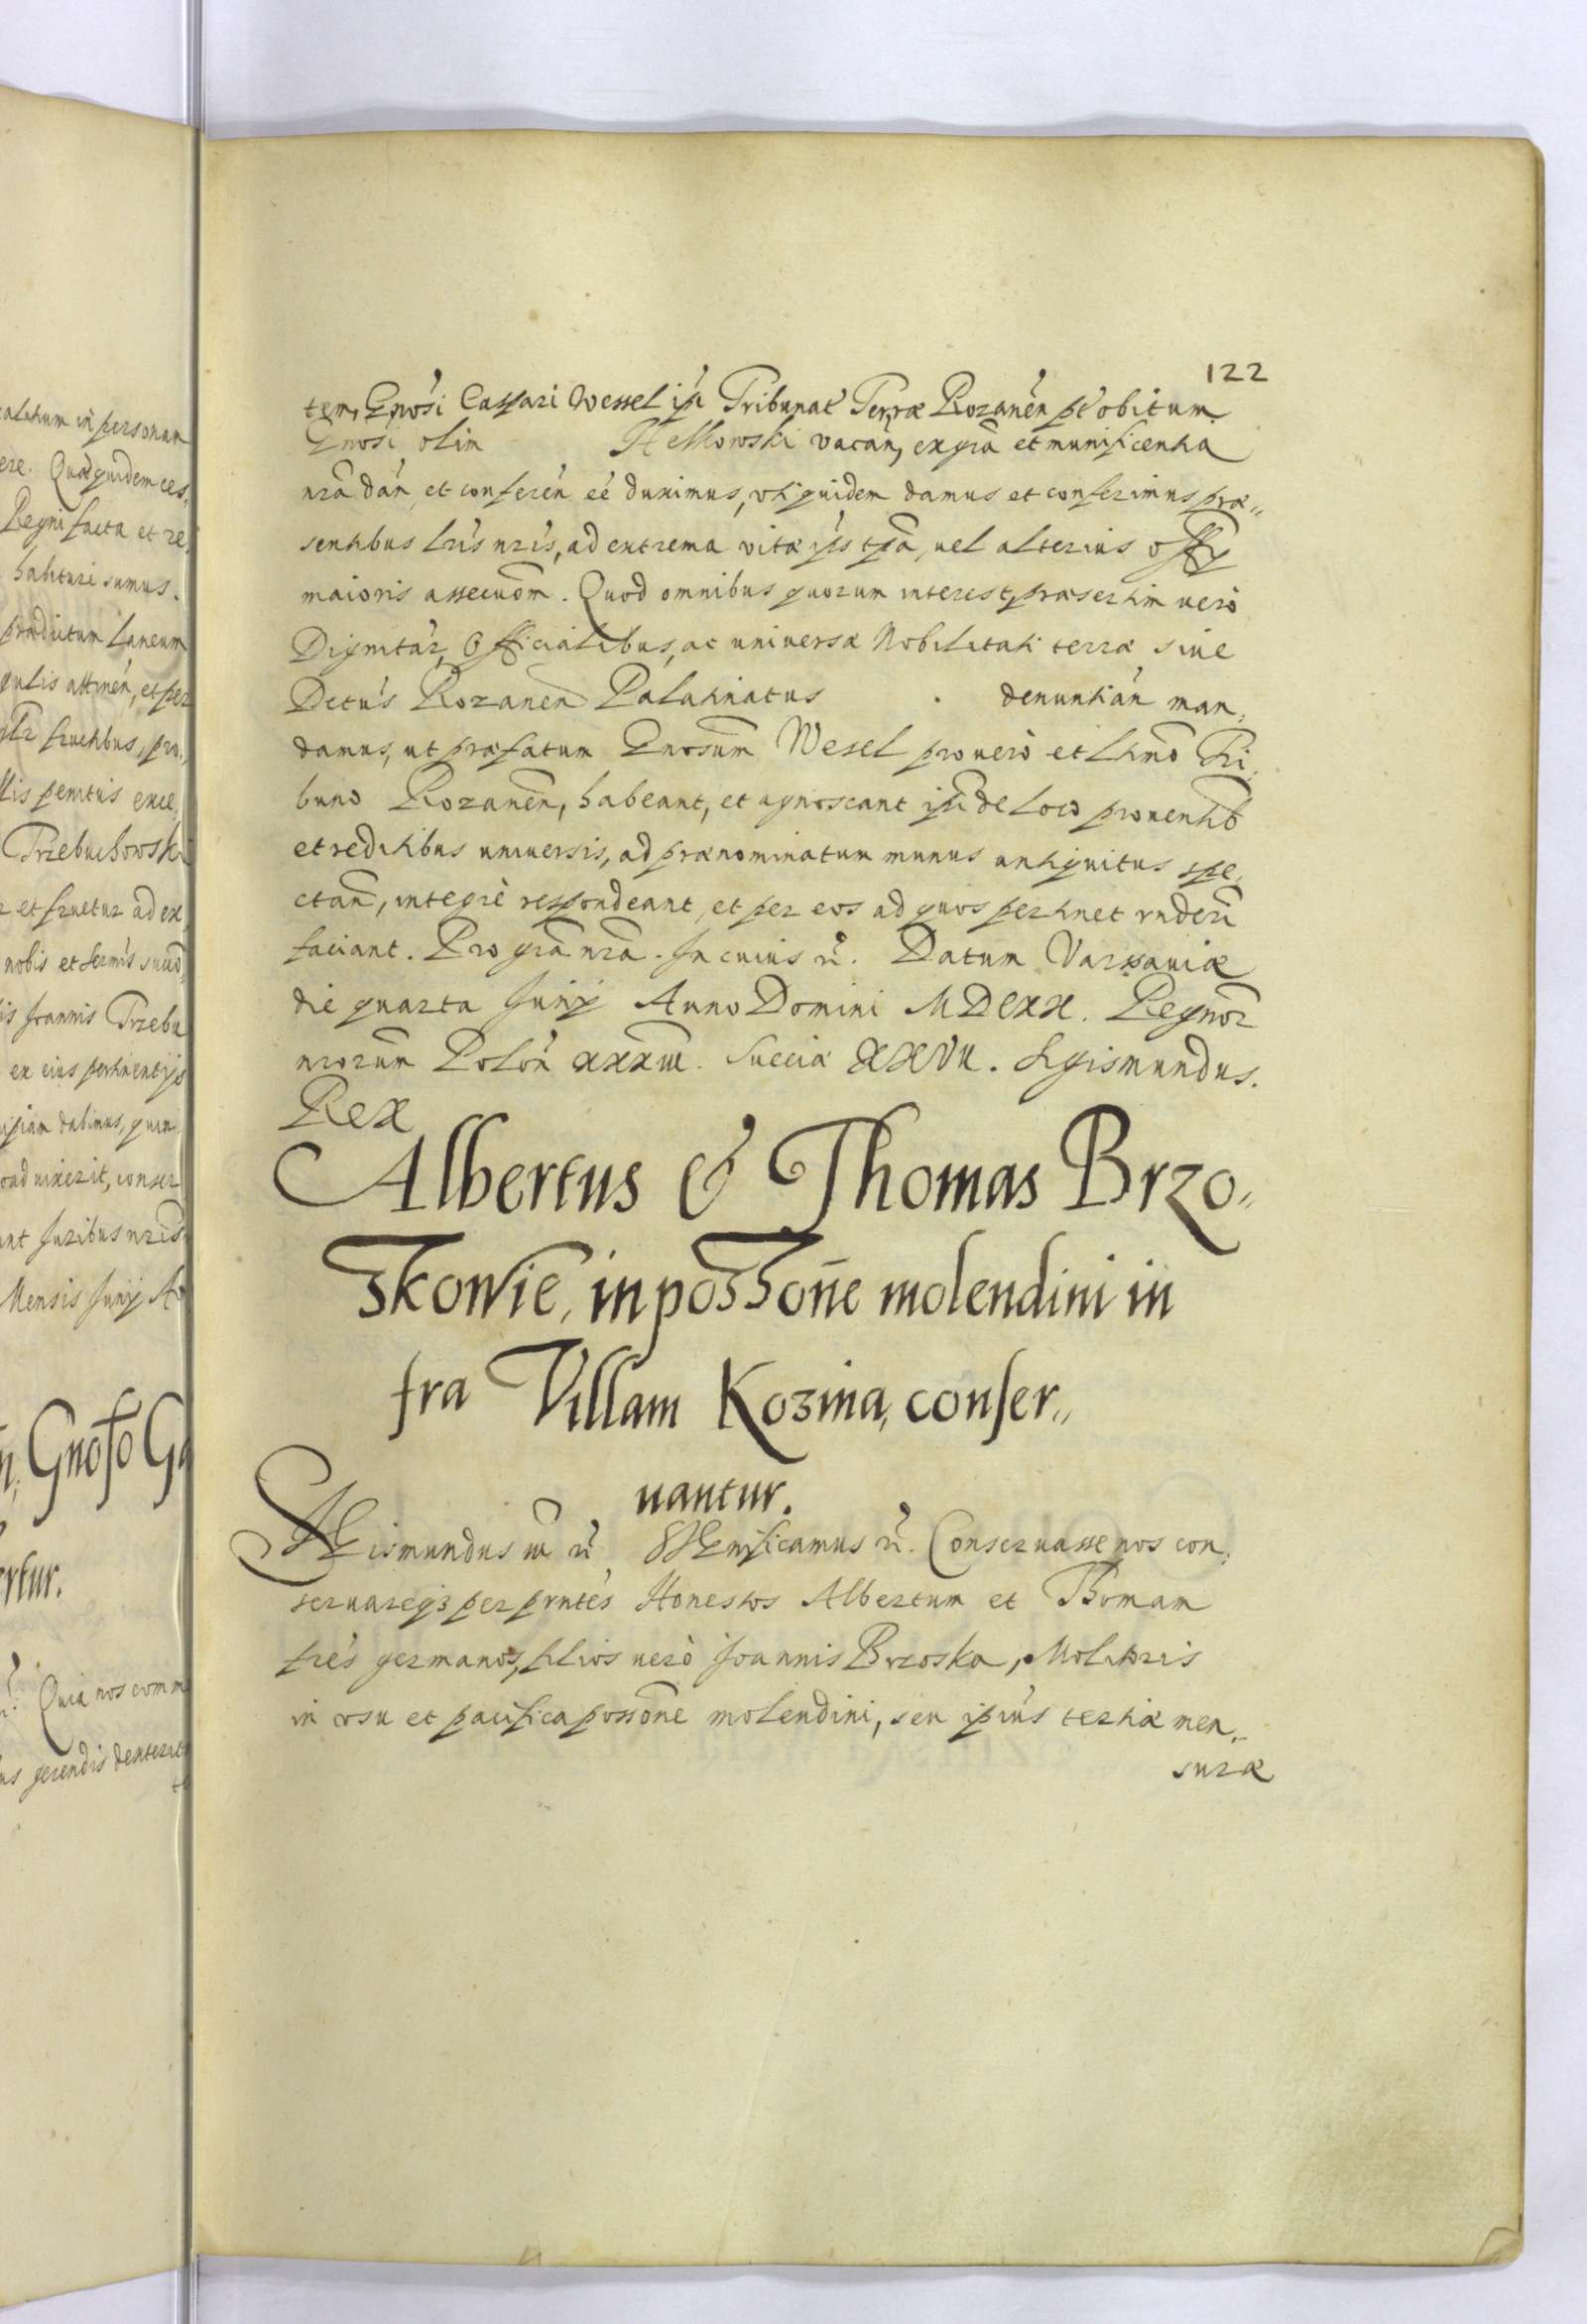 122
tem, Gnosi Caspari Wessel ipi Tribunat' Terræ Rozanen pt obitum
Gnosi olim Helkowski vacan, ex gra et munificentia
nra dan et conferen eé duximus, vti quidem damus et conferimus præ„
sentibus lris nris, ad extrema vitæ ipsius tpa, uel alterius offy
maioris assecuom. Quod omnibus quorum interest, præsertim uerò
Dignitar, Officialibus, ac universæ Nobilitati terræ siue
Dctus Rozanen Palatinatus denuntian man„
damus, ut præfatum Gnosum Wesel pro uero et lhmo Tri„
buno Rozanen, habeant, et agnoscant ipi de loco prouentib
et reditibus uniuersis, ad prænominatum munus antiquitus spe„
ctan, integrè respondeant, et per eos ad quos pertinet rnderi
faciant. Pro gra nra. In cuius r. Datum Varsauiæ
die quarta Junij Anno Domini MDCXX. Regnor
nrorum Polon xxxiii. Sueciæ XXVII. Sigismundus.
Rex
Albertus & Thomas Brzo„
skowie, in possone molendini in
fra Villam Kozina, conser„
uantur.
Sigismundus iii r. Significamus r. Conseruasse nos con„
seruareq3 per prntes Honestos Albertum et Thomam
fres germanos, filios uerò Joannis Brzoska, Molitoris
in vsu et pacifica possone molendini, seu ipius tertiæ men„
suræ
alatum in personam
ere. Quæ quidem ces„
Regni facta et re„
habituri sumus.
prædictum laneum
gulis attinen, et per
glr fructibus, pro„
llis penitus exce„
Trzebuchowski
r et fruetur ad ex
nobis et sermis succ
is Joannis Trzebu
ex eius pertinentijs
ipiam dabimus, quin
oad uixerit, conser
ant Juribus nris
Mensis Junij A
n, Gnoso Ga
ertur.
Quia nos comm
us gerendis dexterit